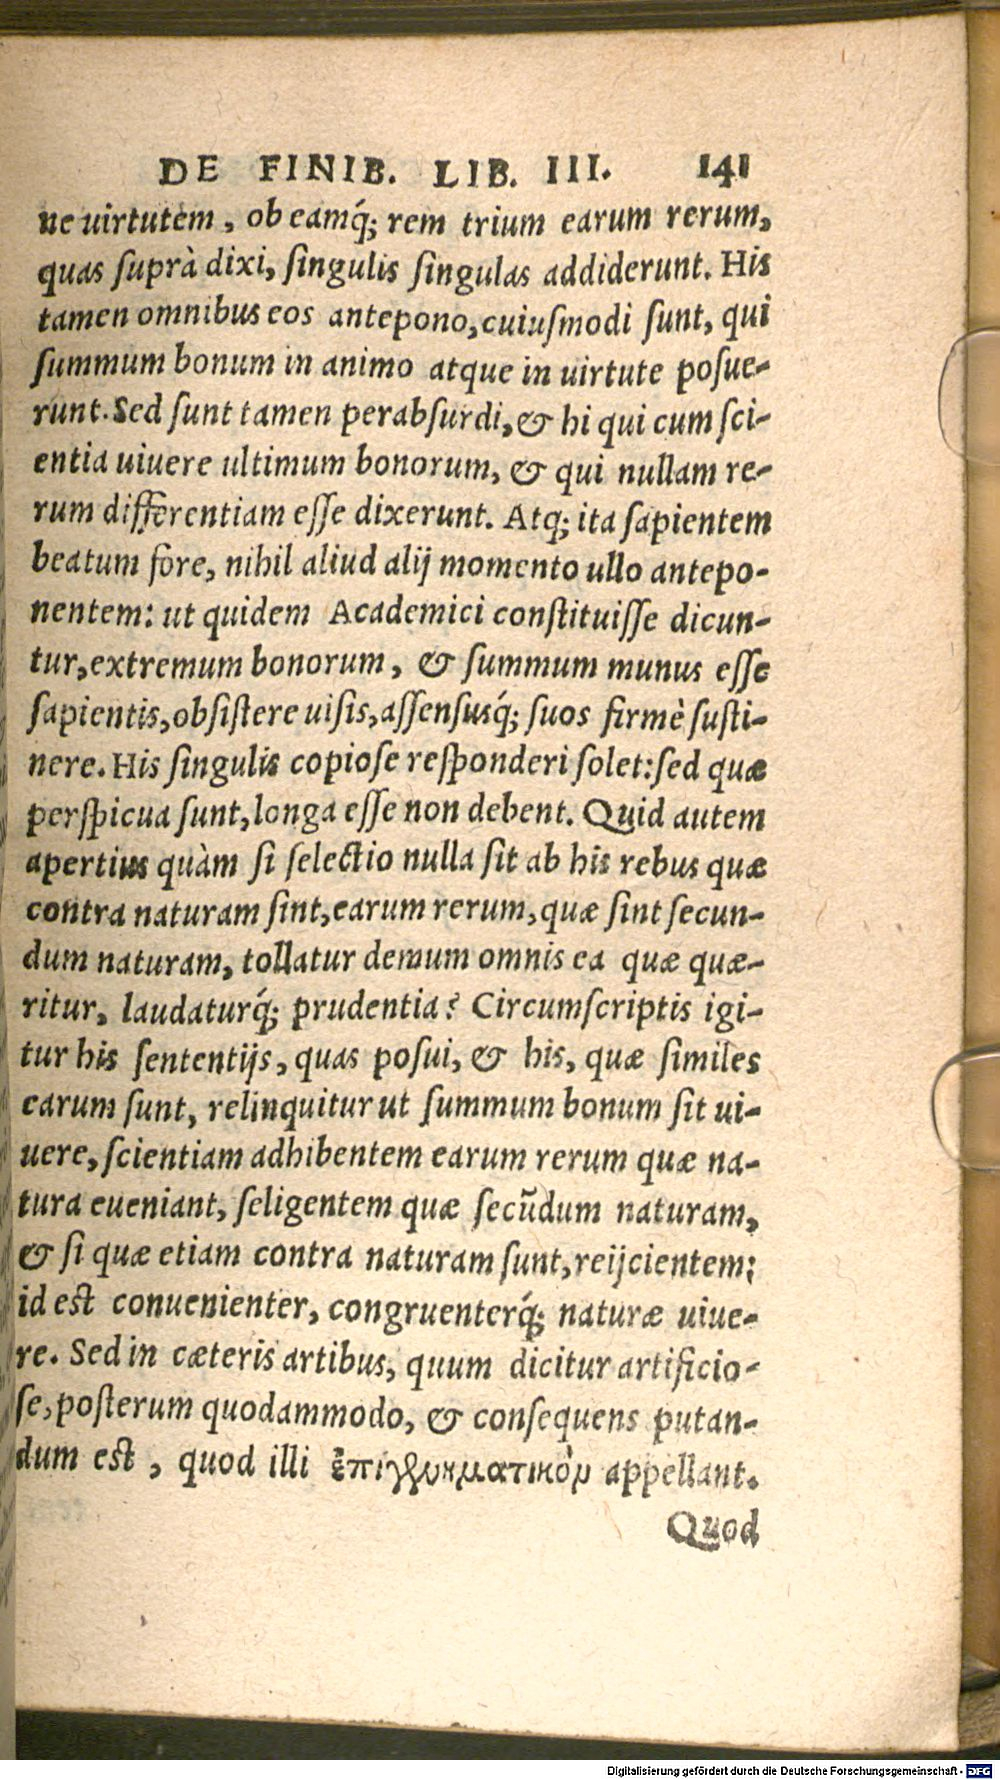 DE FINIB. LIB. III. 141
ne uirtutem, ob eamq́; rem trium earum rerum,
quas suprà dixi, singulis singulas addiderunt. His
tamen omnibus eos antepono, cuiusmodi sunt, qui
summum bonum in animo atque in uirtute posue-
runt. Sed sunt tamen perabsurdi, & hi qui cum sci-
entia uiuere ultimum bonorum, & qui nullam re-
rum differentiam esse dixerunt. Atq; ita sapientem
beatum fore, nihil aliud alij momento ullo antepo-
nentem: ut quidem Academici constituisse dicun-
tur, extremum bonorum, & summum munus esse
sapientis, obsistere uisis, assensusq́; suos firmè susti-
nere. His singulis copiose responderi solet: sed quæ
perspicua sunt, longa esse non debent. Quid autem
apertius quàm si selectio nulla sit ab his rebus quæ
contra naturam sint, earum rerum, quæ sint secun-
dum naturam, tollatur demum omnis ea quæ quæ-
ritur, laudaturq́; prudentia? Circumscriptis igi-
tur his sententijs, quas posui, & his, quæ similes
earum sunt, relinquitur ut summum bonum sit ui-
uere, scientiam adhibentem earum rerum quæ na-
tura eueniant, seligentem quæ secūdum naturam,
& si quæ etiam contra naturam sunt, reijcientem;
id est conuenienter, congruenterq́; naturæ uiue-
re. Sed in cæteris artibus, quum dicitur artificio-
se, posterum quodammodo, & consequens putan-
dum est, quod illi appellant.
Quod
Digitalisierung gefördert durch die Deutsche Forschungsgemeinschaft - DFG